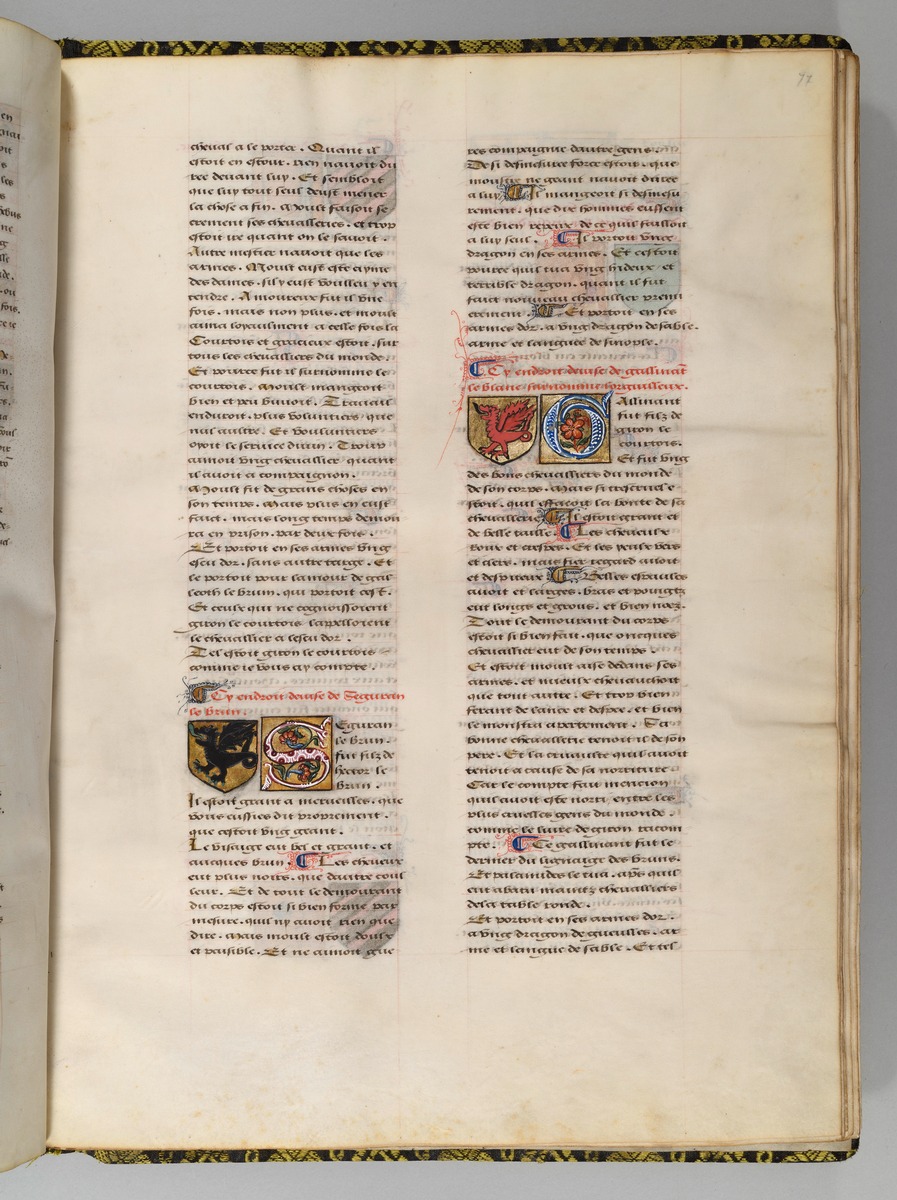 97
cheual a le porter . Quant il
estoit en estour . rien nauoit du
ree deuant luy . Et sembloit
que luy tout seul deust mener
la chose a fin . Moult faisoit se
crement ses cheualleries . et trop
estoit ire quant on le sauoit .
Autre mestier nauoit que les
armes . Moult eust este ayme
des dames . sil y eust voulleu y en
tendre . Amoureux fut il vne
fois . mais non plus . et moult
ama loyaulment a celle fois la
Courtois et gracieux estoit . sur
tous les cheualliers du monde .
Et pource fut il surnomme le
courtois . Moult mangeoit
bien et peu buuoit . Trauail
enduroit . plus voluntiers que
nul aultre . Et voulentiers
oyoit le seruice diuin . Trop
amoit vng cheuallier quant
il auoit a compaignon .
Moult fit de grans choses en
son temps . Mais plus en eust
faict . mais long temps demou
ra en prison . par deux fois .
Et portoit en ses armes vng
escu dor . sans autre targe . Et
le portoit pour lamour de gal
leoth le brun . qui portoit cest .
Et ceulx qui ne cognoissoient
giron le courtois lappelloient
le cheuallier a lescu dor .
Tel estoit giron le courtois
comme ie vous ay compte .
Cy endroit deuise de Seguran
le brun .
Seguran
le brun .
fut filz de
hector le
brun .
Il estoit grant a merueilles . que
vous eussies dit proprement .
que cestoit vng geant .
Le visaige eut bel et grant . et
aucques brun . Les cheueux
eut plus noirs . que daultre coul
leur . Et de tout le demourant
du corps estoit si bien forme par
mesure . quil ny auoit rien que
dire . Mais moult estoit doulx
et paisible . Et ne amoit gue
res compaignie dautre gens .
De si desmesuree force estoit . que
monstre ne geant nauoit duree
a luy . Il mangeoit si desmesu
reement . que dix hommes eussent
este bien repeuz de ce quil failloit
a luy seul . Il portoit vng
dragon en ses armes . Et cestoit
pource quil tua vng hideux et
terrible dragon . quant il fut
faict nouueau cheuallier premi
erement . Et portoit en ses
armes dor . a vng dragon de sable .
arme et langue de sinople .
Cy endroit deuise de gallinant
le blanc surnomme lorgueilleux .
Gallinant
fut filz de
giron le
courtois .
Et fut vng
des bons cheualliers du monde
de son corps . Mais si cruel e
stoit . quil effacoit la bonte de sa
cheuallerie . Il estoit grant et
de belle taille . Les cheueulx
roux et crespes . Et les yeulx vers
et clers . mais fier regard auoit
et despiteux . Belles espaulles
auoit et larges . bras et poingtz
eut longs et grous . et bien noez .
Tout le demourant du corps
estoit si bien fait . que oncques
cheuallier eut de son temps .
Et estoit moult aise dedans ses
armes . et mieulx cheuauchoit
que tout aultre . Et trop bien
ferant de lance et despee . et bien
le monstra apertement . Sa
bonne cheuallerie tenoit il de son
pere . Et la cruaulte quil auoit
tenoit a cause de sa norriture .
Car le compte fait mencion
quil auoit este norri entre les
plus cruelles gens du monde .
comme le liure de giron racom
pte . Ce gallinant fut le
dernier du lignaige des bruns .
Et palamides le tua . aps quil
eut abatu maintz cheualliers
de la table ronde .
Et portoit en ses armes dor .
a vng dragon de gueulles . ar
me et langue de sable . Et tel